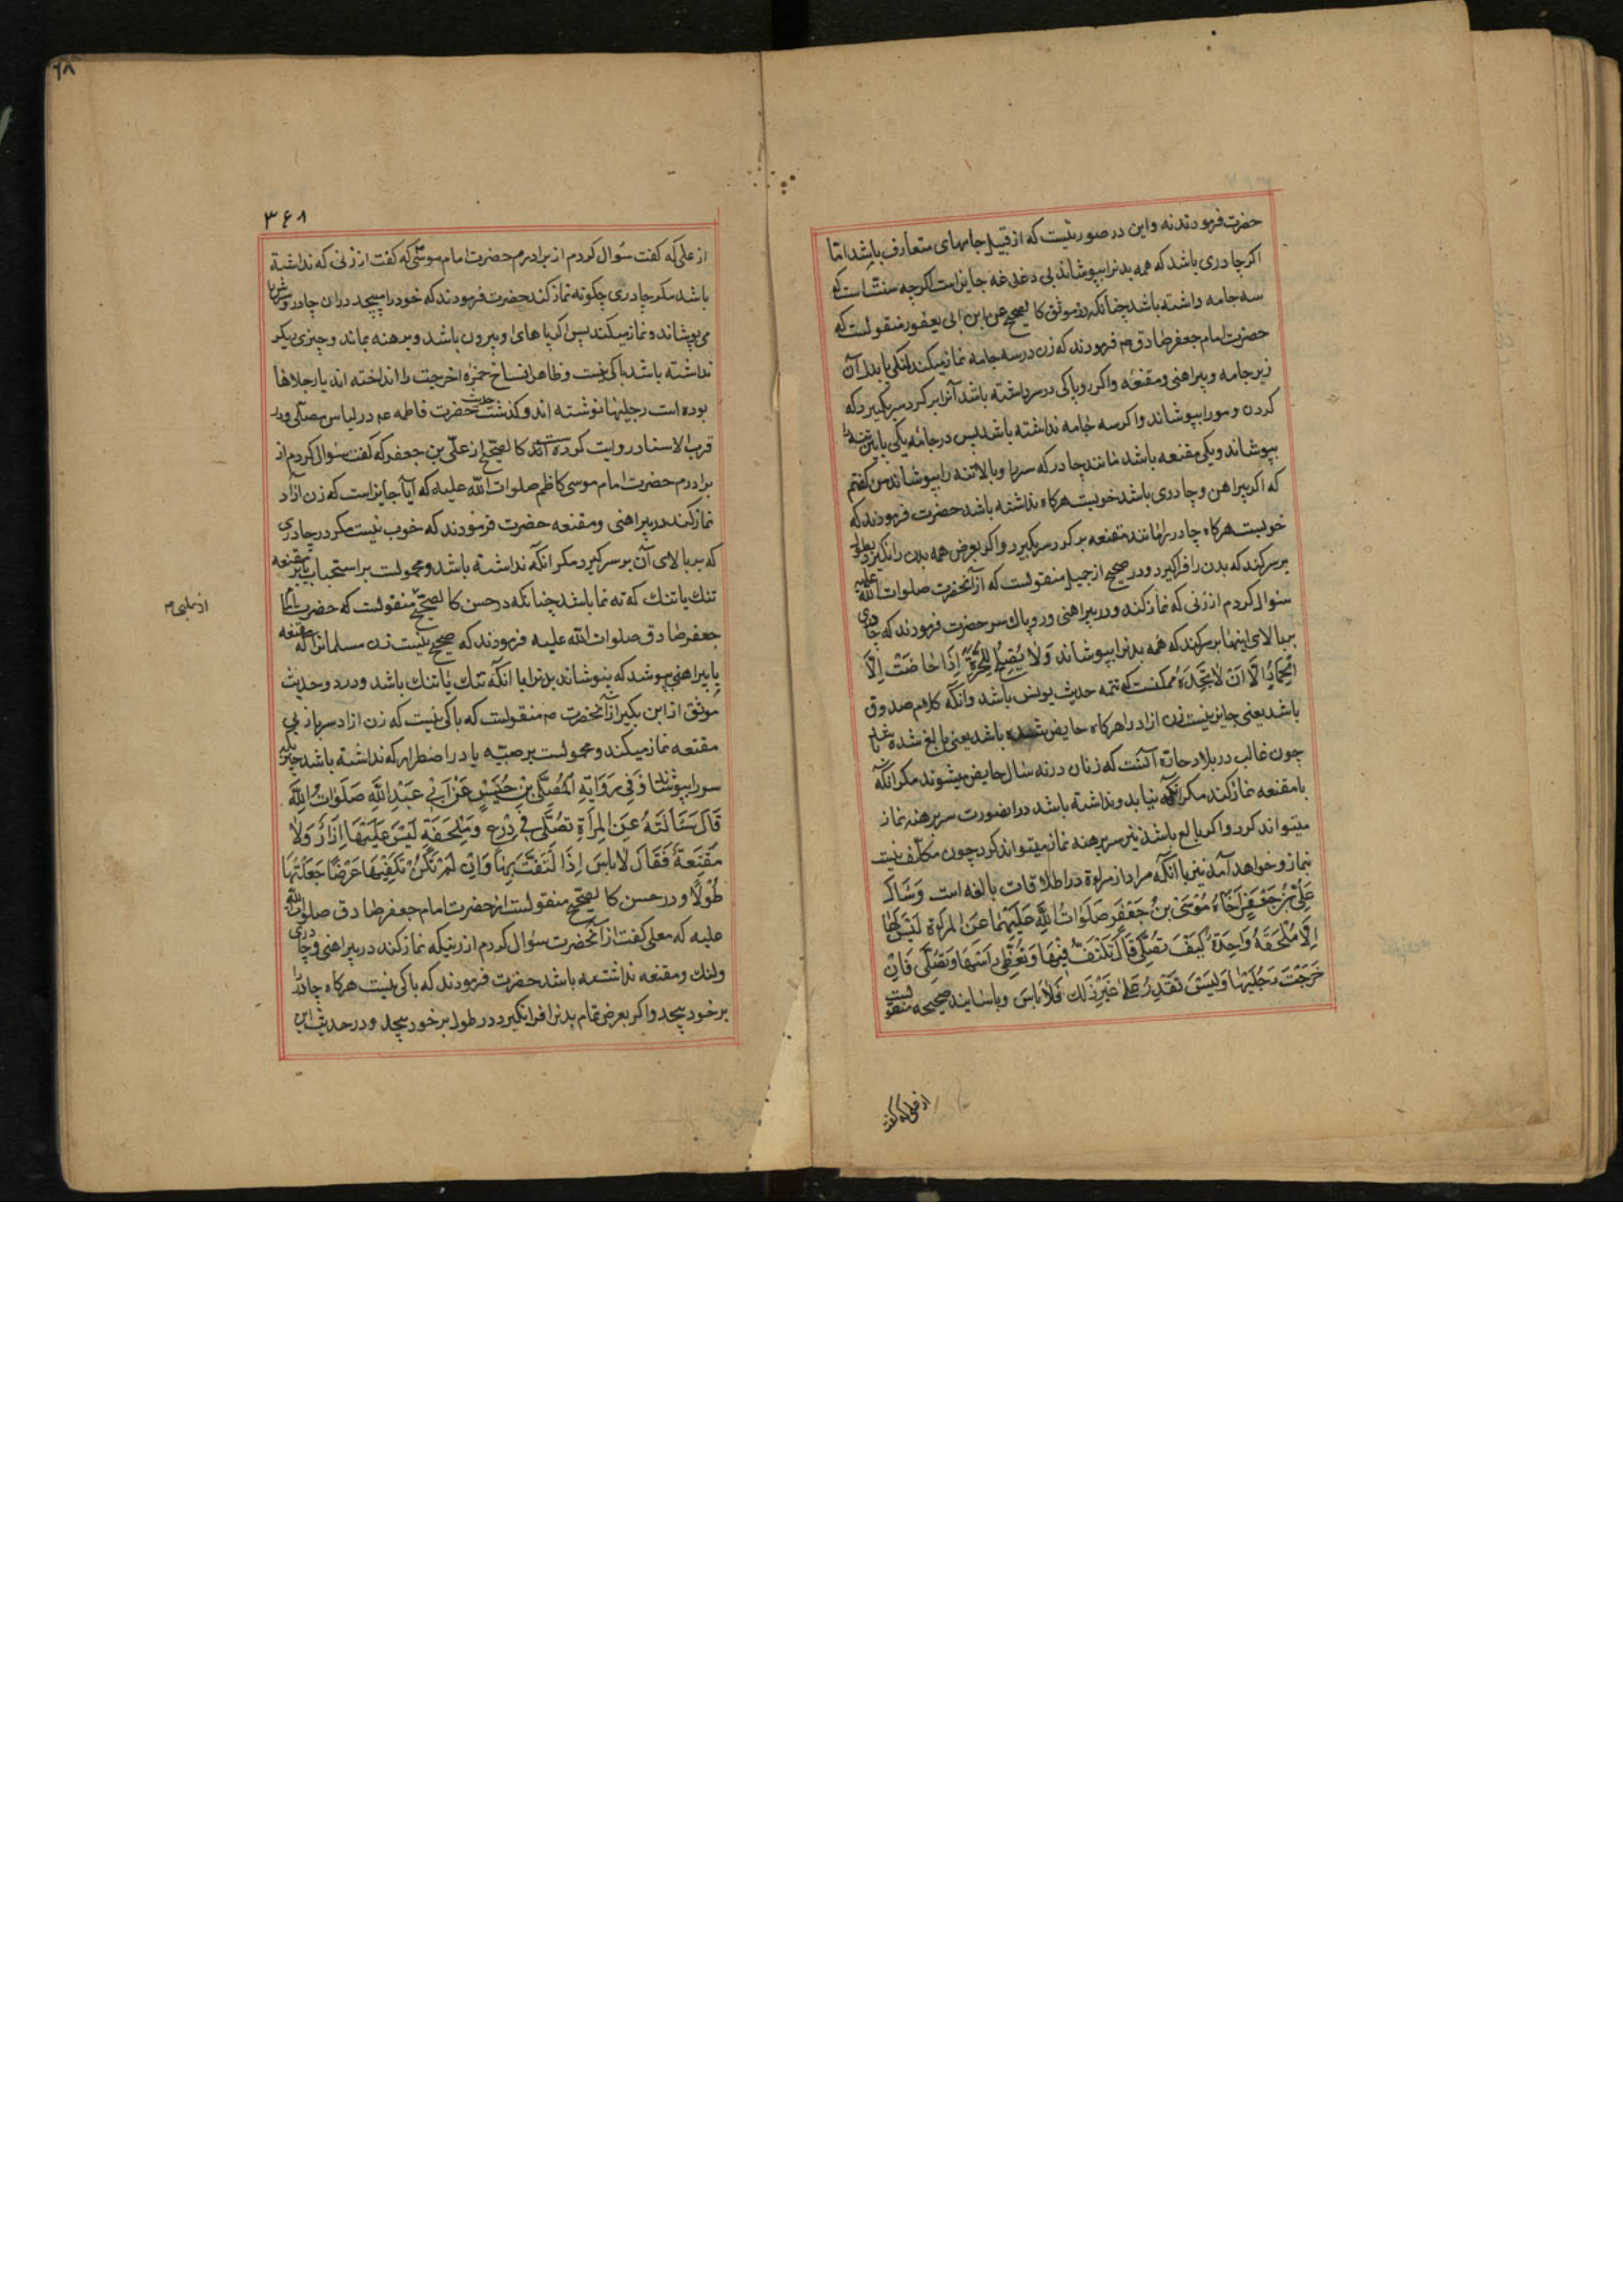 حضرت فرمودند نه و این در صورتیست که از قبیل جامهای متعارف باشد اما
اکر چادری باشد که همه بدنرا بپوشاند بی دغدغه جایز است اکرچه سنتست که
سه جامه داشته باشد چنانکه در موثق کالصحیح عن ابن ابی یعفور منقولست که
حضرت امام جعفر صادق ع م فرمودند که زن در سه جامه نماز میکند لنکی یا بدل آن
زیر جامه و پیراهنی و مقنعه و اکر روپاکی در سر داشته باشد آنرا بر کرد سر بکیرد که
کردن و مو را بپوشاند و اکر سه جامه نداشته باشد پس در جامه یکی پایین تنه را
بپوشاند و یکی مقنعه باشد مانند چادر که سر را و بالا تنه را بپوشاند من کفتم
که اکر پیراهن و چادری باشد خوبست هرکاه نداشته باشد حضرت فرمودند که
خوبست هرکاه چادر را مانند مقنعه بر کرد سر بکیرد و اکر بعرض همه بدن را نکیرد بطول
بر سر کند که بدن را فرا کیرد و در صحیح از جمیل منقولست که از آنحضرت صلوات الله علیه
سئوال کردم از زنی که نماز کند در پیراهنی و روپاک سر حضرت فرمودند که چادری
ببالای اینها بر سر کند که همه بدنرا بپوشاند وَلٰا یُصِحُّ لِلحُرَّةِ اِذَا حٰاضَتْ اِلَّا
الخِمَارُ اِلَّا اَنْ لٰا تَجِدَهُ ممکنست که تتمه حدیث یونس باشد و آنکه کلام صدوق
باشد یعنی جایز نیست زن ازاد را هرکاه حایض شده باشد یعنی بالغ شده باشد
چون غالب در بلاد حاره آنست که زنان در نه سال حایض میشوند مکر آنکه
با مقنعه نماز کند مکر آنکه نیابد و نداشته باشد در اینصورت سر برهنه نماز
میتواند کرد و اکر بالغ باشد نیز سر برهنه نماز میتواند کرد چون مکلف نیست
بنماز و خواهد آمد نیز با آنکه مراد از مراة در اطلاقات بالغه است وَسَاَلَ
عَلِیُّ بْنُ جَعْفَرٍ اَخَاهُ مُوْسَیَ بْنَ جَعْفَرٍ صَلَوَاتُ اللّٰهِ عَلَیْهِمَا عَنِ المَراَةِ لَیْسَ لَهَا
اِلَّا مِلْحَفَةٌ وَاحِدَةٌ کَیْفَ تُصَلِّی قَالَ تَلْتَفُّ فِیْهَا وَ تُغَطِّی رَاسَهَا وَ تُصَلِّی فَاِنْ
خَرَجَتْ رِجْلَیْهَا وَلَیْسَ تَقْدِرُ عَلٰی غَیْرِ ذٰلِکَ فَلٰا بَاسَ و باسانید صحیحه منقولست
از علی که کفت
۳۶۸
از علی که کفت سئوال کردم از برادرم حضرت امام موسی که کفت از زنی که نداشته
باشد مکر چادری چکونه نماز کند حضرت فرمودند که خود را میپیچد در ان چادر و سرش را
می پوشاند و نماز میکند پس اکر پاهای او بیرون باشد و برهنه بماند و چیزی دیکر
نداشته باشد باکی نیست و ظاهرا نساخ همزه اخرجت را انداخته اند یا رجلاها
بوده است رجلیها نوشته اند و کذشت حدیث حضرت فاطمه ع م در لباس مصلی و در
قرب الاسناد روایت کرده اند کالصحیح از علی بن جعفر که کفت سئوال کردم از
برادرم حضرت امام موسی کاظم صلوات الله علیه که آیا جایز است که زن ازاد
نماز کند در پیراهنی و مقنعه حضرت فرمودند که خوب نیست مکر در چادری
که ببالای آن بر سر کیرد مکر انکه نداشته باشد و محمولست بر استحباب یا بر مقنعه
تنک یا تنک که ته نما باشد چنانکه در حسن کالصحیح منقولست که حضرت امام
جعفر صادق صلوات الله علیه فرمودند که صحیح نیست زن مسلمانرا که مقنعه
یا پیراهنی بپوشد که نپوشاند بدنرا یا آنکه تنک یا تنک باشد و در دو حدیث
موثق از ابن بکیر از آنحضرت ع م منقولست که باکی نیست که زن ازاد سر باز بی
مقنعه نماز میکند و محمولست بر صبیّه یا در اضطرار که نداشته باشد چیزیکه
سر را بپوشاند وَفِی رِوَایَةِ المُعَلَّی بْنِ خُنَیْسٍ عَنْ اَبِی عَبْدِ اللّٰهِ صَلَوَاتُ اللّٰهِ
قَالَ سَئَالْتُهُ عَنِ المِرَأةِ تُصَلِّی فِی دِرْعٍ وَ مِلْحَفَةٍ لَیْسَ عَلَیْهَا اِزَارٌ وَلٰا
مِقْنِعَةٌ فَقَالَ لٰا بَاسَ اِذَا التَفَّتْ بِهَا وَاِنْ لَمْ تَکُنْ تَکْفِیْهَا عَرْضًا جَعَلَتْهَا
طُوْلًا و در حسن کالصحیح منقولست از حضرت امام جعفر صادق صلوات الله
علیه که معلی کفت از آنحضرت سئوال کردم از زنیکه نماز کند در پیراهنی و چادری
و لنک و مقنعه نداشته باشد حضرت فرمودند که باکی نیست هرکاه چادر را
بر خود پیچد و اکر بعرض تمام بدنرا فرا نکیرد در طول بر خود پیچد و در حدیث این